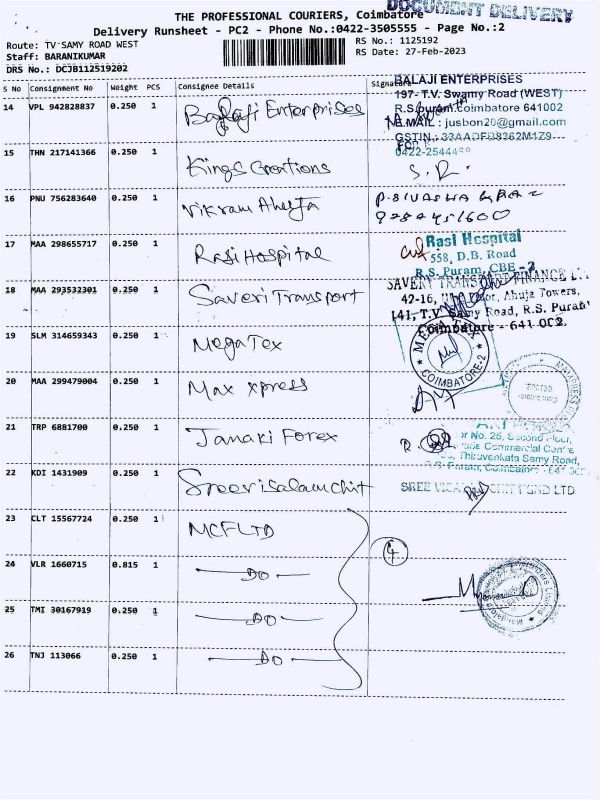 DOCUMENT DELIVERY
THE PROFESSIONAL COURIERS, Coimbatore
Delivery Runsheet - PC2 - Phone No.:0422-3505555 - Page No.:2
Route: TV SAMY ROAD WEST
RS No.: 1125192
Staff: BARANIKUMAR
RS Date: 27-Feb-2023
DRS No.: DCJB112519202
S No Consignment No Weight PCS Consignee Details Signature
BALAJI ENTERPRISES
197- T.V. Swamy Road (WEST)
R.S.puram.coimbatore 641002
E.MAIL : jusbon20@gmail.com
GSTIN: 33AADFB8362M1Z9
0422-2544
14 VPL 942828837 0.250 1 Balaji Enterprises
15 THN 217141366 0.250 1 Kings Creations S.R.
16 PNU 756283640 0.250 1 Vikram Ahuja
17 MAA 298655717 0.250 1 Rasi Hospital
Rasi Hospital
558, D.B. Road
R.S. Puram, CBE - 2
18 MAA 293532301 0.250 1 Saveri Transport
SAVERI TRANSPORT FINANCE
42-16, Ahuja Towers,
141, T.V. Samy Road, R.S. Puram
Coimbatore - 641 002.
19 SLM 314659343 0.250 1 Mega Tex
MEGA TEX
COIMBATORE-2
20 MAA 299479004 0.250 1 Max xpress
21 TRP 6881700 0.250 1 Janaki Forex
No. 25, Second Floor,
Commercial Centre
Thiruvenkata Samy Road,
R.S. Puram, Coimbatore
22 KDI 1431909 0.250 1 Sreevisalam chit
SREE VISALAM CHIT FUND LTD
23 CLT 15567724 0.250 1 MCF LTD
4
24 VLR 1660715 0.815 1 DO
25 TMI 30167919 0.250 1 DO
26 TNJ 113066 0.250 1 DO